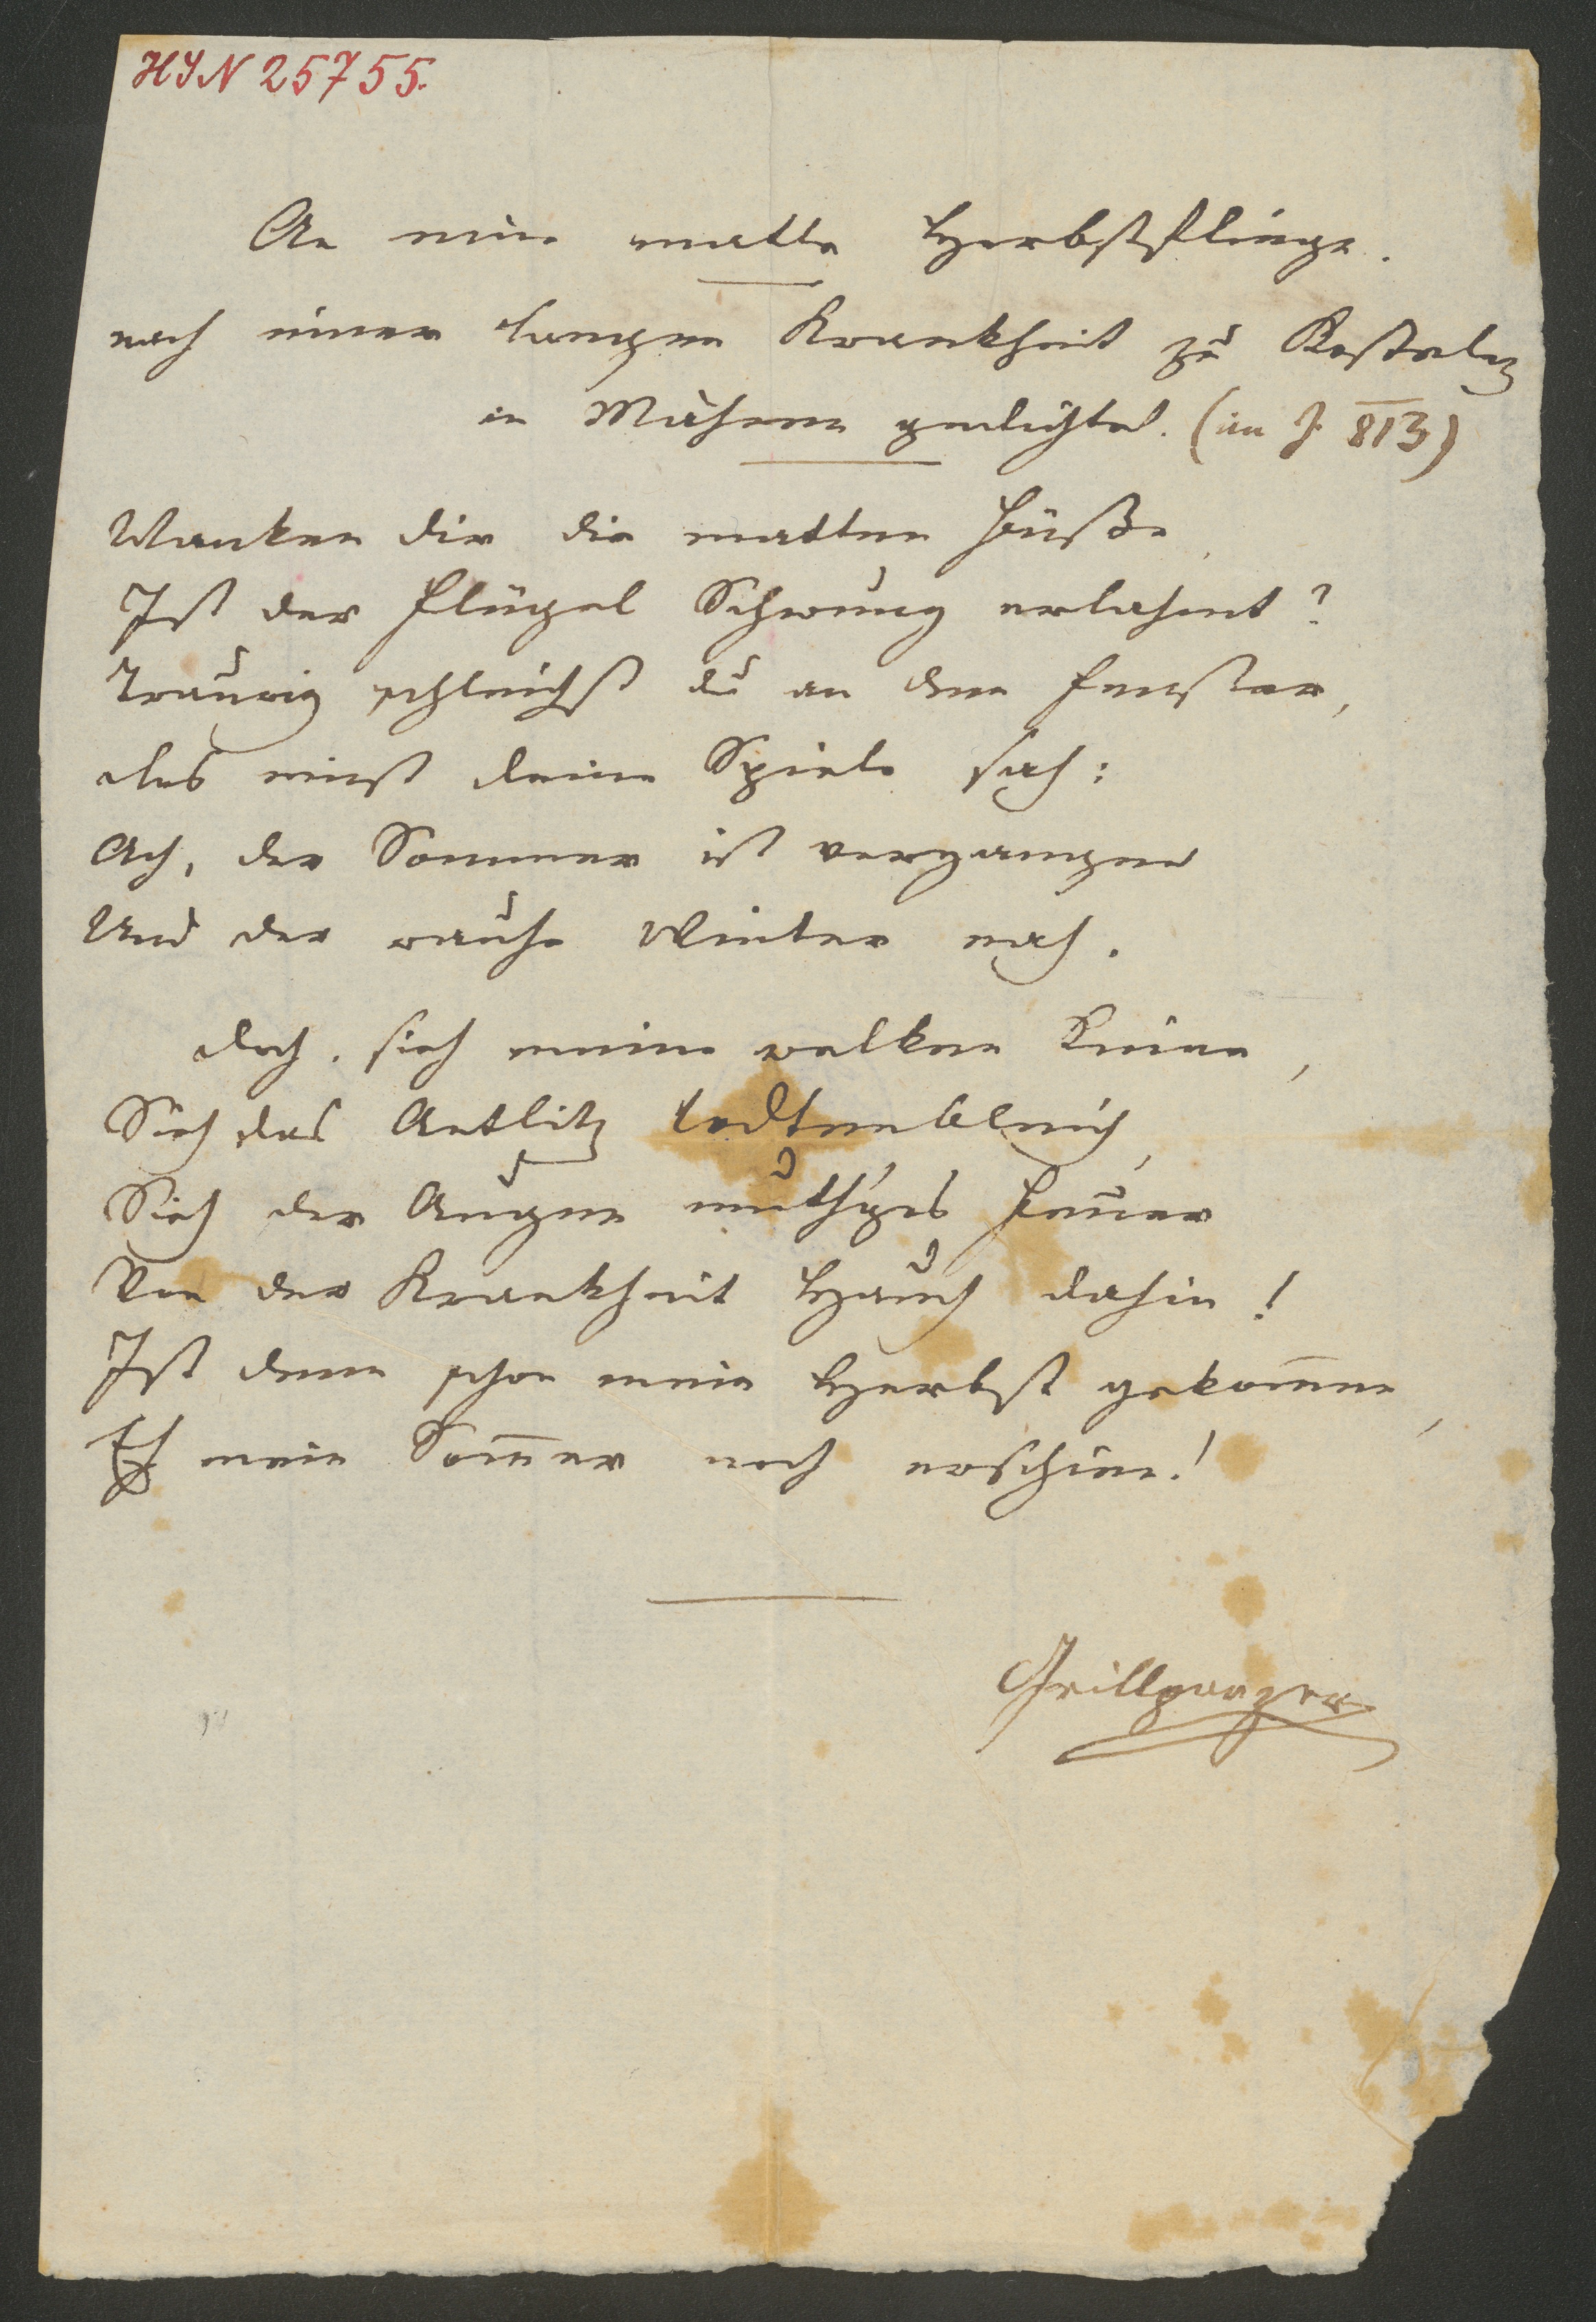 HIN 25755.
An eine matte Herbstfliege.
nach einer langen Krankheit zu Kostelez
in Mähren gedichtet. (im J. 813)
Wanken dir die matten Füße,
Ist der Flügel Schwung erlahmt?
Traurig schleichst du an dem Fenster,
das einst deine Spiele sah:
Ach, der Sommer ist vergangen
Und der rauhe Winter nah.
doch, sieh meine welken Kniee,
Sieh das Antlitz todtenbleich,
Sieh der Augen muth'ges Feuer
Von der Krankheit Hauch dahin!
Ist denn schon mein Herbst gekom̅en,
Eh mein Som̅er noch erschien!
Grillparzer